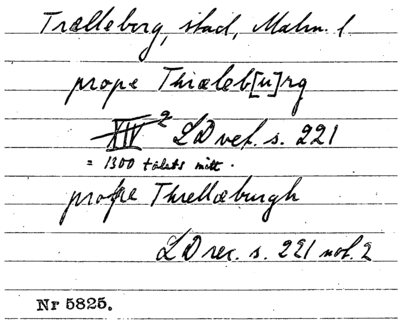 Trælleborg, stad, Malm. l.
prope Thræleb[u]rg
XIV 2 LD vet. s. 221
= 1300 talets mitt.
prope Threllæburgh
LD rec. s. 221 not. 2
Nr 5825.